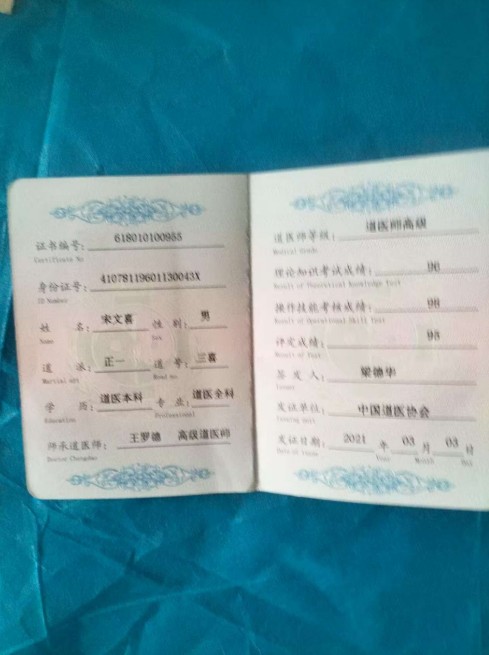 证书编号：618010100955
Certificate No
身份证号：41078119601130043X
ID Number
姓 名：宋文喜 性 别：男
Name Sex
道 派：正一 道 号：三喜
Martial art Road no
学 历：道医本科 专 业：道医全科
Education Professional
师承道医师：王罗德 高级道医师
Doctor Chengdao
道医师等级：道医师高级
Medical Grade
理论知识考试成绩：96
Result of Theoretical Knowledge Test
操作技能考核成绩：98
Result of Operational Skill Test
评定成绩：95
Result of Test
签 发 人：梁德华
Issuer
发证单位：中国道医协会
Issuing unit
发证日期：2021 年 03 月 03 日
Date of issue Year Month Day